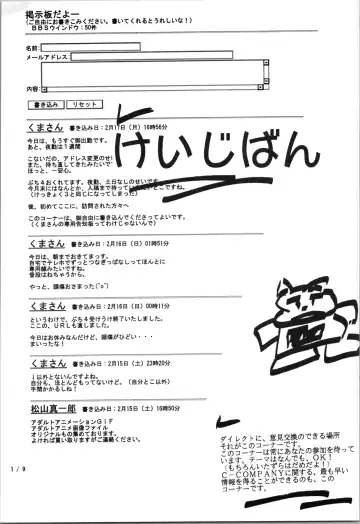 掲示板だよー
(ご自由にお書きこみください。書いてくれるとうれしいな!)
BBSウインドウ:50件
名前:
メールアドレス:
内容:
書き込み リセット
けいじばん
くまさん 書き込み日:2月17日(月)16時56分
今日は、もうすぐ御出勤です。
あと、夜勤は1週間
こないだの、アドレス変更のせい
また、持ち直してきたみたいで
ほっと、一安心。
ぷち4おくれてます。夜勤、土日なしのせいです。
今月末にはなんとか、人様まで持って
(けっきょく3と同じになってしまった)
後、初めてここに、訪問された方々へ
このコーナーは、御自由に書き込んでくださってよいです。
(くまさんの専用告知板ってわけじゃないんで)
くまさん 書き込み日:2月16日(日)01時51分
今日は、朝までおきてまっす。
自宅でテレホでずっとつなぎっぱなしってほんとに
専用線みたいですね。
普段はねちゃうから。
やっと、頭痛おさまった(^o^)
くまさん 書き込み日:2月16日(日)00時11分
というわけで、ぷち4受けうけ終了いたしました。
ここの、URLも直しました。
今日はお休みなんだけど、頭痛がひどい・・・
まいったな!
くまさん 書き込み日:2月15日(土)23時20分
↓以外とないんですよね。
自分も、ほとんどもってないけど。(自分とこ以外)
手間かかるしね!
松山真一郎 書き込み日:2月15日(土)16時50分
アダルトアニメーションGIF
アダルトアニメ画像ファイル
オリジナルもの集めております。
よければ買い取りますがご連絡ください。
ダイレクトに、意見交換のできる場所
それがこのコーナーです。
このコーナーは常にあなたの参加を待って
います。テーマはなんでも、OK!
(もちろんいたずらはだめだよ!)
C-COMPANYに関する、最も早い
情報を得ることができるのも、この
コーナーです。
1/9